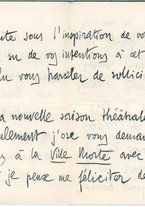 sous l'inspiration de vo
vu de vos intentions à cet
vous harceler de sollici
a nouvelle saison théâtrale
ulement j'ose vous deman
à la Ville Morte avec
je peux me féliciter de